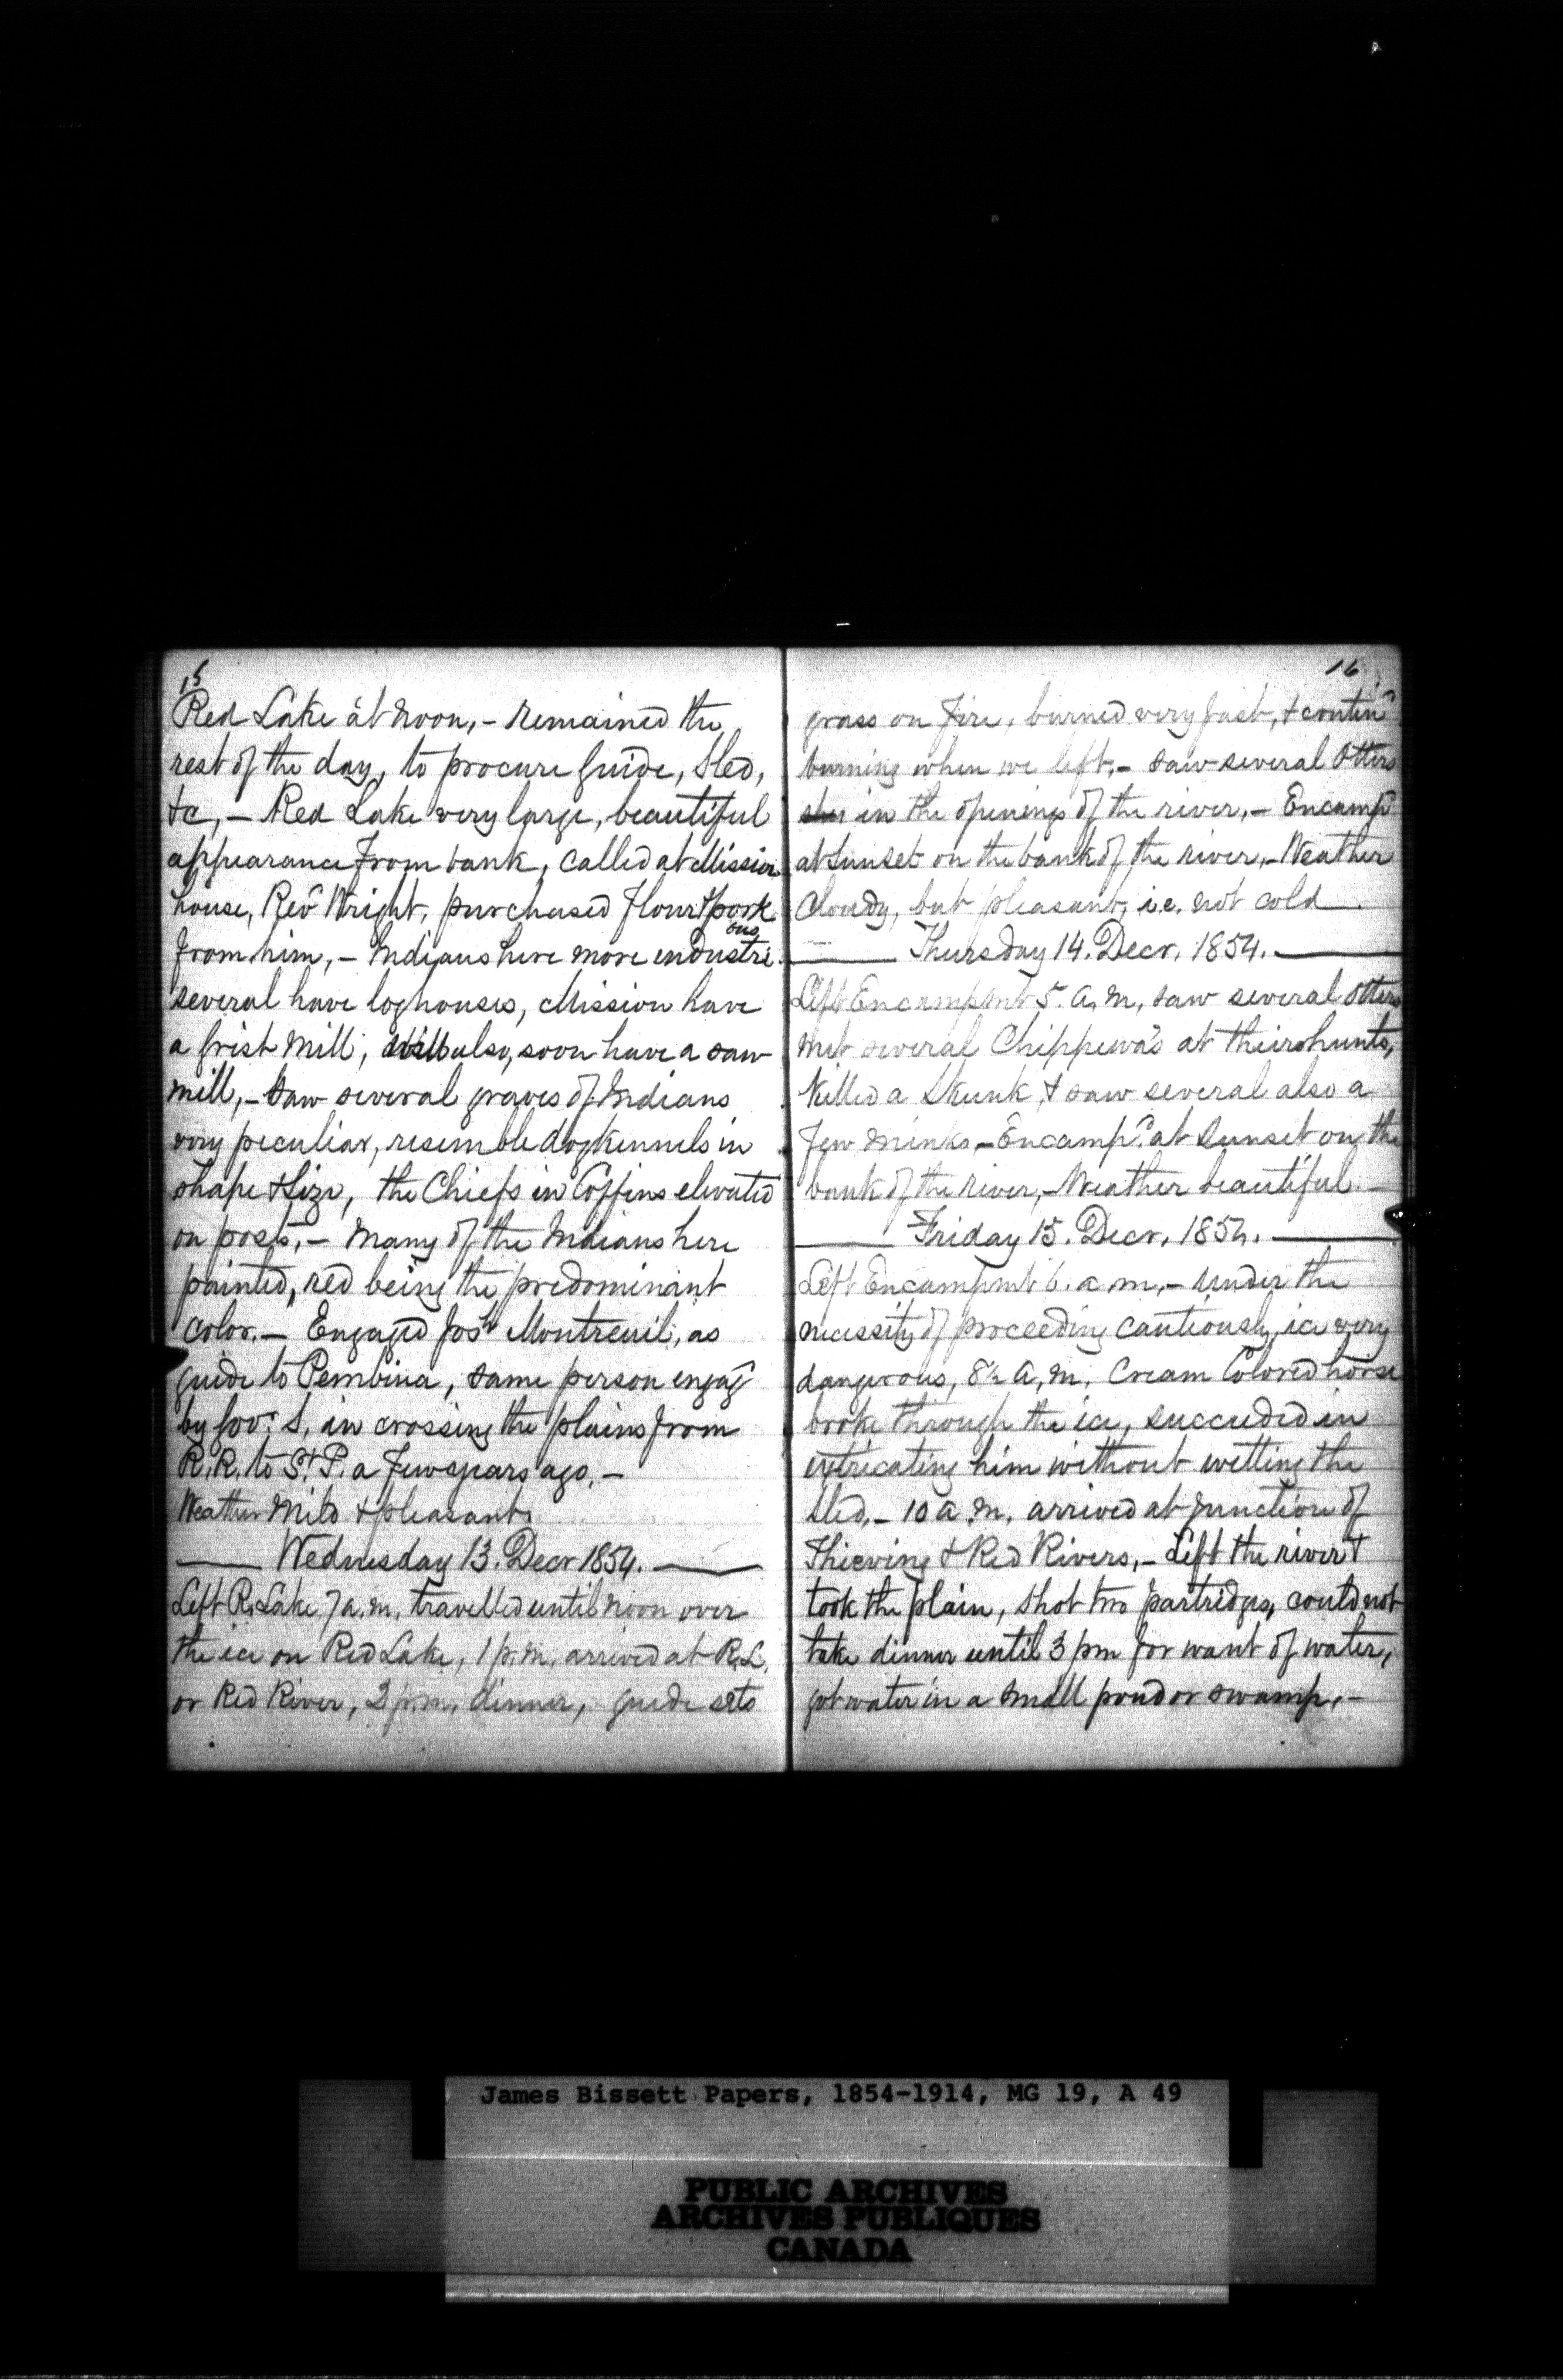 15
Red Lake at noon, - remained the
rest of the day, to procure guide, sled,
&c, - Red Lake very large, beautiful
appearance from bank, called at Mission
house, Revd Wright, purchased flour & pork
from him, - Indians here more industrious
several have loghouses, Mission have
a grist mill, will also, soon have a saw
mill, - saw several graves of Indians
very peculiar, resemble dogkennels in
shape & size, the Chiefs in Coffins elevated
on posts, - many of the Indians here
painted, red being the predominant
color. - Engaged Josh Montreuil, as
guide to Pembina, same person engagd
by Govr S. in crossing the plains from
R.R. to St P. a few years ago, -
Weather mild & pleasant.
Wednesday 13. Decr 1854.
Left R. Lake 7 a.m. travelled until noon over
the ice on Red Lake, 1 p.m. arrived at R.L.
or Red River, 2 p.m. dinner, guide sets
16
grass on fire, burned very fast, & contind
burning when we left, - saw several otters
in the openings of the river, - Encampd
at sunset on the bank of the river, - Weather
Cloudy, but pleasant, i.e. not cold.
Thursday 14. Decr. 1854.
Left Encampmnt 5. a.m, saw several otters
met several Chippewa's at their hunts,
killed a skunk, & saw several also a
few minks, - Encampd at sunset on the
bank of the river, - Weather beautiful. -
Friday 15. Decr. 1854.
Left Encampmnt 6. a.m, - under the
necessity of proceeding cautiously, ice very
dangerous, 8½ a.m. Cream Colored horse
broke through the ice, succeeded in
extricating him without wetting the
sled, - 10 a.m. arrived at junction of
Thieving & Red Rivers, - Left the river &
took the plain, shot two partridges, could not
take dinner until 3 pm for want of water,
got water in a small pond or swamp, -
James Bissett Papers, 1854-1914, MG 19, A 49
PUBLIC ARCHIVES
ARCHIVES PUBLIQUES
CANADA